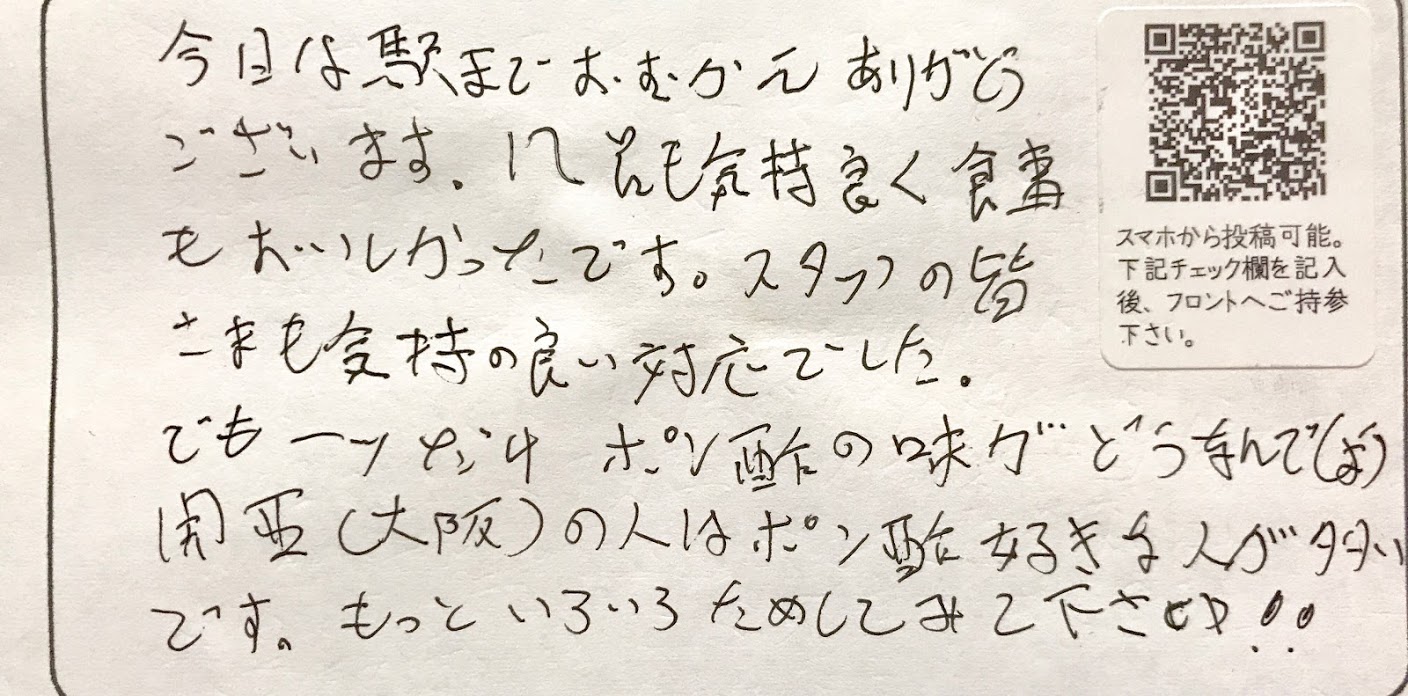 今日は駅までおむかえありがとう
ございます。とても気持良く食事
もおいしかったです。スタッフの皆
さまも気持の良い対応でした。
でも一ツだけ ポン酢の味がどうなんでしょう
関西(大阪)の人はポン酢好きな人が多い
です。もっといろいろためしてみて下さい!!
スマホから投稿可能。
下記チェック欄を記入
後、フロントへご持参
下さい。